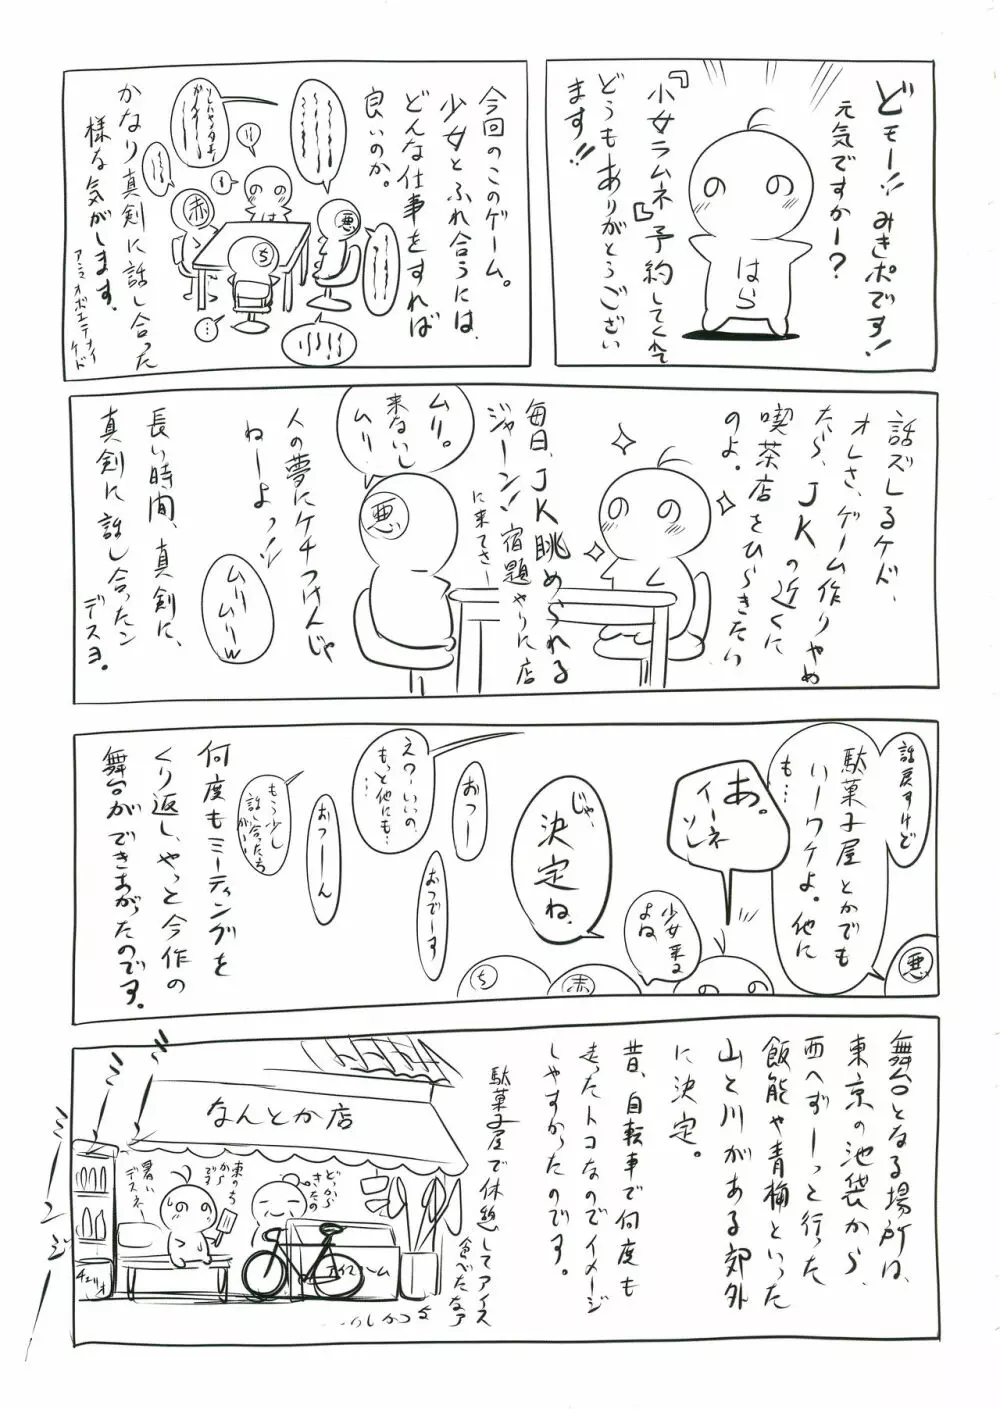 どモー!!みきポです!
元気ですかー?
『少女ラムネ』予約してくれて
どうもありがとうござい
ます!!
はら
今回のこのゲーム。
少女とふれ合うには、
どんな仕事をすれば
良いのか。
悪
赤
ち
は
かなり真剣に話し合った
様な気がします。
アンマオボエテナイケド
話ズレるケド、
オレさ、ゲーム作りやめ
たら、JKの近くに
喫茶店をひらきたい
のよ。
毎日、JK眺められる
ジャーン!宿題やりに店
に来てさー
ムリ。
来ないし
ムリ
悪
人の夢にケチつけんじゃ
ねーよッ!!
ムリー
ムリw
長い時間、真剣に、
真剣に話し合ったン
デスヨ。
話戻すけど
駄菓子屋とかでも
いーワケよ。他に
も…
悪
あ。
イーネ
ソレ
少女来る
よね
じゃ、
決定ね、
赤
ち
おつー
え?いいの、
もっと他にも…
おつでーす
おつーん
もう少し
話し合ったら
がいい
何度もミーティングを
くり返し、やっと今作の
舞台ができあがったのです。
舞台となる場所は、
東京の池袋から、
西へずーっと行った
飯能や青梅といった
山と川がある郊外
に決定。
昔、自転車で何度も
走ったトコなのでイメージ
しやすかったのです。
駄菓子屋で休憩してアイス
食べたなァ
なつかしい…
なんとか店
どっから
きたの
東のち
から
です
暑い
デスネ
アイスクリーム
チェリオ
ミーンミーンジー